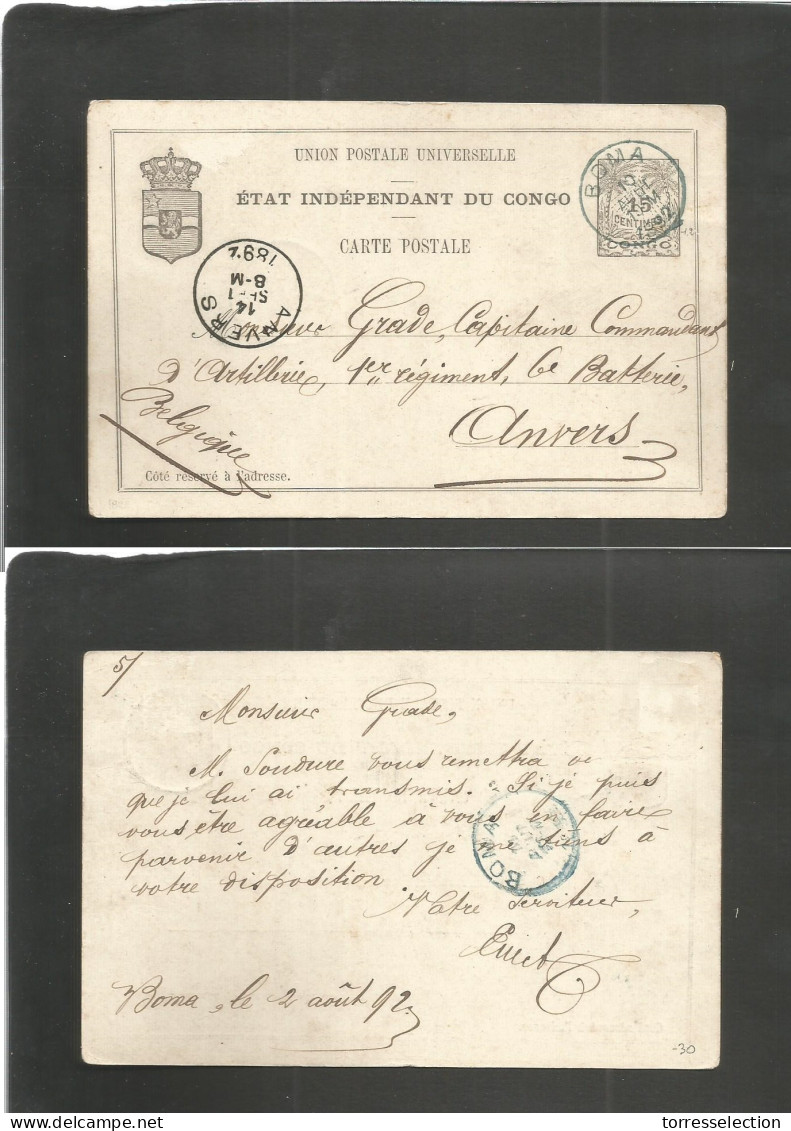 UNION POSTALE UNIVERSELLE
ÉTAT INDÉPENDANT DU CONGO
CARTE POSTALE
BOMA
15
CENTIMES
CONGO
ANVERS
14
SEPT
8-M
1892
Monsieur Grade, Capitaine Commandant
d'Artillerie, 1er régiment, 6e Batterie,
Anvers
Belgique
Côté réservé à l'adresse.
5/
Monsieur Grade,
M. Soudure vous remettra ce
que je lui ai transmis. Si je puis
vous être agréable à vous en faire
parvenir d'autres je me tiens à
votre disposition
Votre serviteur,
BOMA
Boma, le 2 août 92
-30
torresselection